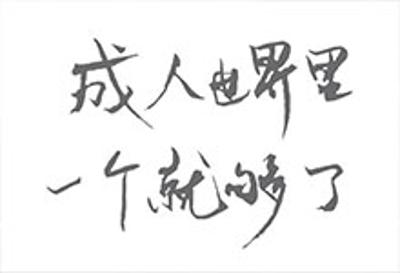 成人世界里
一个就够了